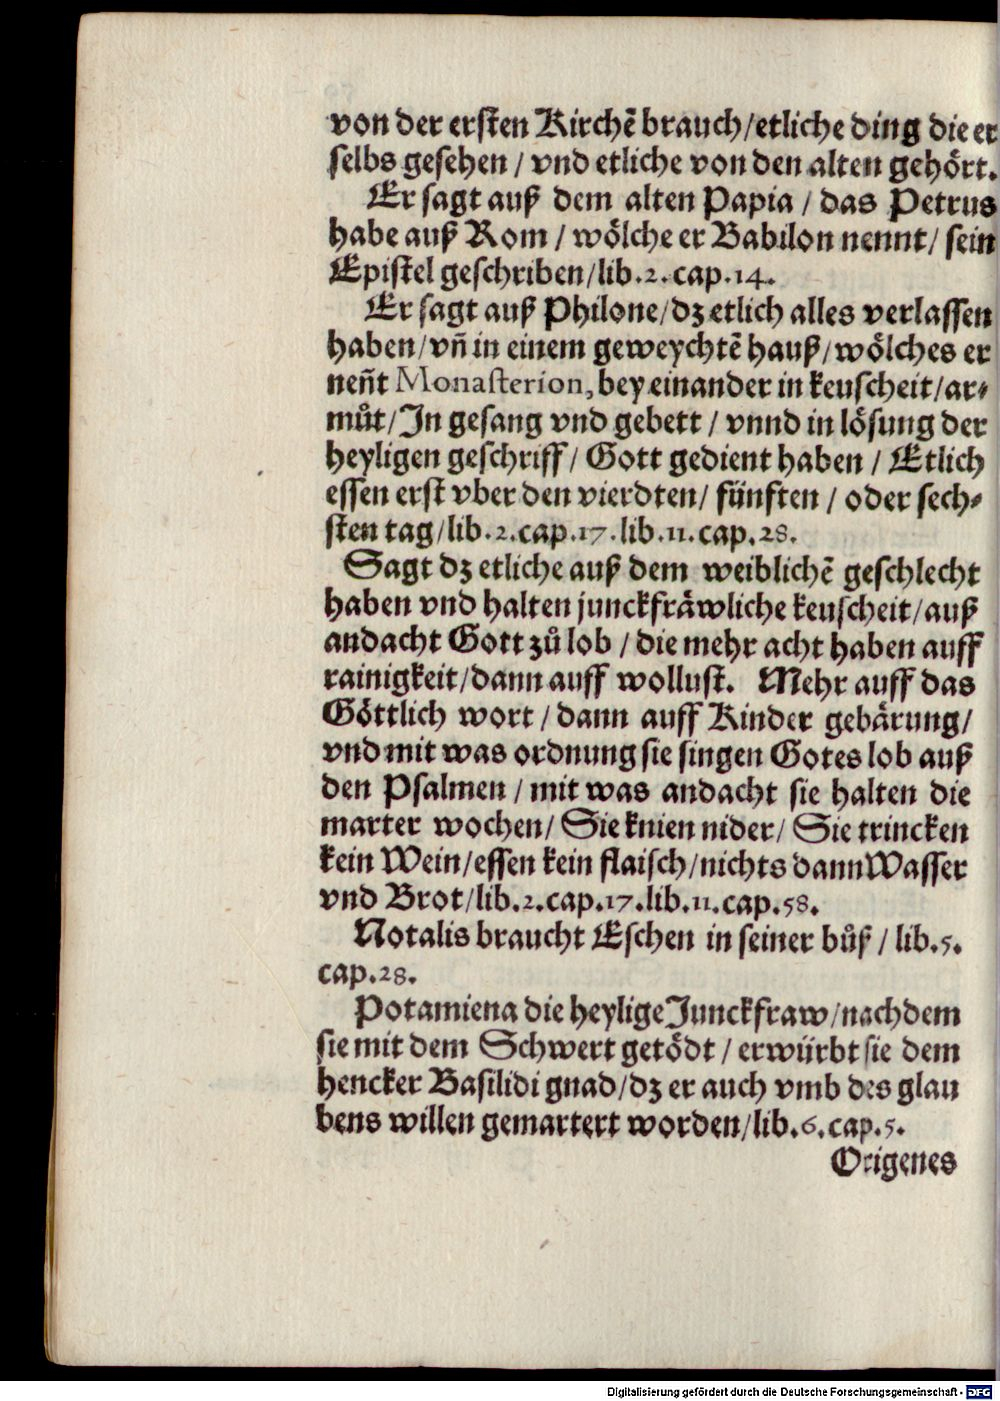 von der ersten Kirchē brauch/etliche ding die er
selbs gesehen / vnd etliche von den alten gehört.
Er sagt auß dem alten Papia / das Petrus
habe auß Rom / wölche er Babilon nennt/ sein
Epistel geschriben/lib.2.cap.14.
Er sagt auß Philone/dz etlich alles verlassen
haben/vñ in einem geweychtē hauß/wölches er
nen̄t Monasterion, bey einander in keuscheit/ar⸗
můt/In gesang vnd gebett / vnnd in lösung der
heyligen geschriff/ Gott gedient haben / Etlich
essen erst vber den vierdten/ fünften / oder sech⸗
sten tag/lib.2.cap.17.lib.11.cap.28.
Sagt dz etliche auß dem weiblichē geschlecht
haben vnd halten junckfräwliche keuscheit/auß
andacht Gott zů lob / die mehr acht haben auff
rainigkeit/dann auff wollust. Mehr auff das
Göttlich wort / dann auff Kinder gebärung/
vnd mit was ordnung sie singen Gotes lob auß
den Psalmen / mit was andacht sie halten die
marter wochen/ Sie knien nider/ Sie trincken
kein Wein/essen kein flaisch/nichts dann Wasser
vnd Brot/lib.2.cap.17.lib.11.cap.58.
Notalis braucht Eschen in seiner bůß / lib.5.
cap.28.
Potamiena die heylige Junckfraw/nachdem
sie mit dem Schwert getödt / erwürbt sie dem
hencker Basilidi gnad/dz er auch vmb des glau
bens willen gemartert worden/lib.6.cap.5.
Origenes
Digitalisierung gefördert durch die Deutsche Forschungsgemeinschaft - DFG